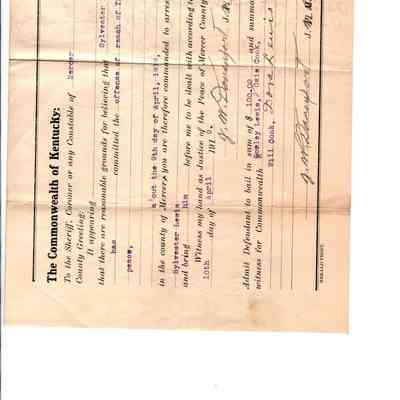 The Commonwealth of Kentucky:
To the Sheriff, Coroner or any Constable of Mercer
County Greeting:
It appearing
that there are reasonable grounds for believing that Sylvester
has committed the offense of reach of
peace,
a out the 9th day of April, 191
in the county of Mercer, you are therefore commanded to arres
Sylvester Lewis
and bring him before me to be dealt with according to
Witness my hand as Justice of the Peace of Mercer County
10th day of April 191
J. W. Davenport J.
Admit Defendant to bail in sum of $ 100.00 and summo
witness for Commonwealth Lewis, Cook,
Will Cook, Dora Lewis
J. W. Davenport J. M
HERALD PRINT.